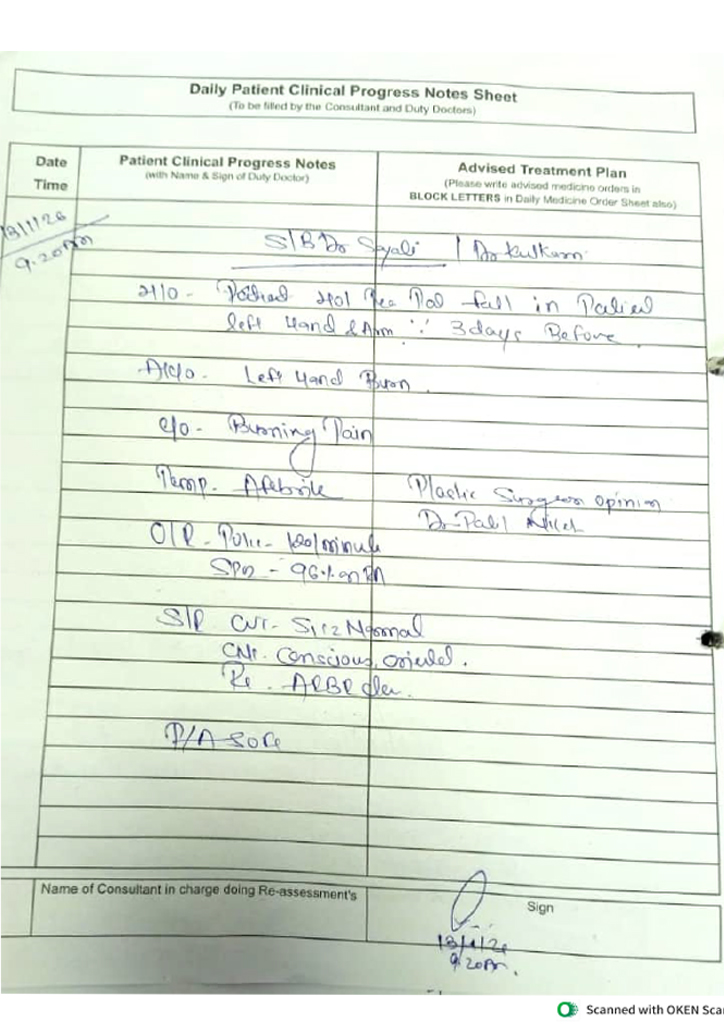 Daily Patient Clinical Progress Notes Sheet
(To be filled by the Consultant and Duty Doctors)
Date
Time
Patient Clinical Progress Notes
(with Name & Sign of Duty Doctor)
Advised Treatment Plan
(Please write advised medicine orders in
BLOCK LETTERS in Daily Medicine Order Sheet also)
13/1/26
9.20Am
S/B Dr Sayali / Dr Kulkarni
H/O - fall in
left Hand & Arm ∵ 3days Before.
A/C/O - Left Hand Burn.
c/o - Burning Pain
Temp. Afebrile
Plastic Surgeon opinion
Dr. Patil
O/E - Pulse - 120/minute
SPO2 - 96% on RA
S/E CVS - S1S2 Normal
CNS. Conscious, oriented.
Rs. AEBE clear.
P/A Soft
Name of Consultant in charge doing Re-assessment's
Sign
13/1/26
9.20Am.
Scanned with OKEN Sca